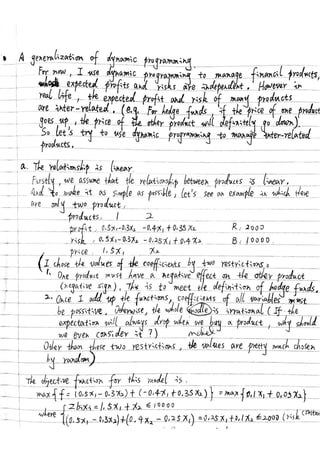 • A generalization of dynamic programming
For now, I use dynamic programming to manage financil products,
expected profits and risks are independent. However in
real life, the expected profit and risk of many products
are inter-related. (e.g. For hedge funds, if the price of one product
goes up, the price of the other product will definitely go down).
So let's try to use dynamic programming to manage inter-related
products.
a. The relationship is linear
Firstly, we assume that the relationship between products is linear.
And to make it as simple as possible, let's see an example in which there
are only two product.
products. 1 2
profit. 0.5x₁-0.3x₂ -0.4x₁+0.35x₂ R: 2000
risk. 0.5x₁-0.3x₂ -0.25x₁+0.4x₂ B: 10000
price. 1.5x₁ x₂
(I chose the values of the coefficients by two restrictions:
1. One product must have a negative effect on the other product
(negative sign). This is to meet the definition of hedge funds.
2. Once I add up the functions, coefficients of all variables must
be possitive. Otherwise, the whole model is irrational (If the
expectation will always drop when we buy a product, why should
we even consider it?)
Other than these two restrictions, the values are pretty much chosen
by random)
The objective function for this model is.
max{f = (0.5x₁-0.3x₂)+(-0.4x₁+0.35x₂)} = max{0.1x₁+0.05x₂}
where { Σbixi = 1.5x₁+x₂ ≤ 10000
(0.5x₁-0.3x₂)+(0.4x₂-0.25x₁) = 0.25x₁+0.1x₂ ≤ 2000 (risk